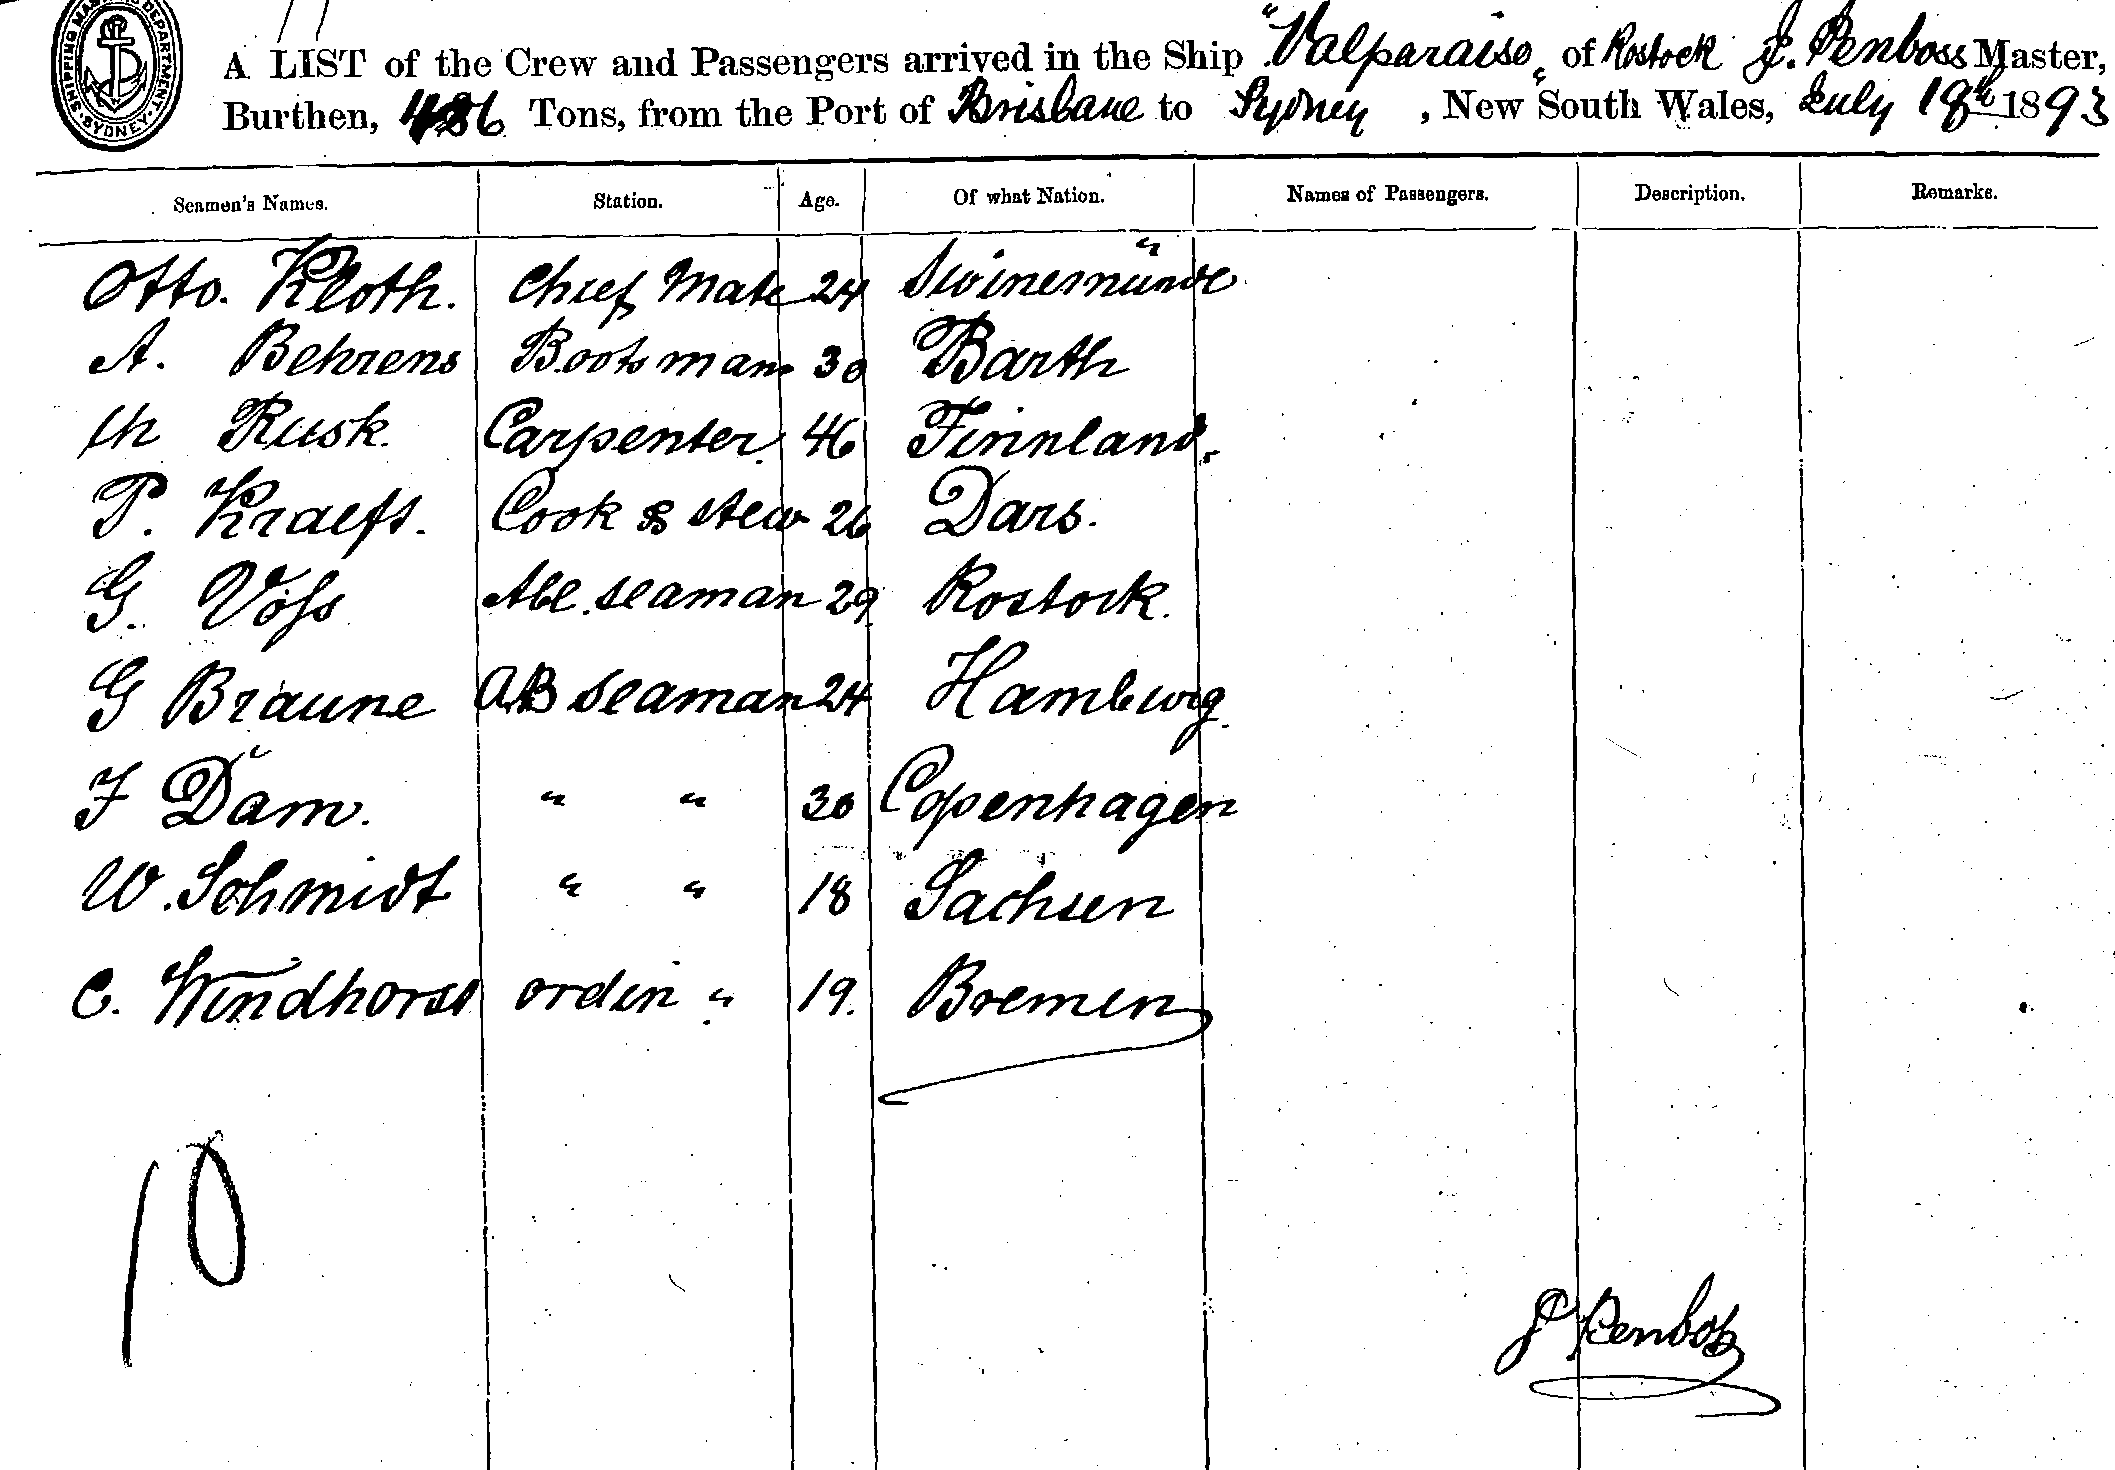 SHIPPING MASTERS DEPARTMENT. SYDNEY.
A LIST of the Crew and Passengers arrived in the Ship "Valparaiso" of Rostock J. Penboss Master,
Burthen, 486 Tons, from the Port of Brisbane to Sydney, New South Wales, July 18th 1893
Seamen's Names. Station. Age. Of what Nation. Names of Passengers. Description. Remarks.
Otto. Kloth. Chief Mate 24 Swinemünde
A. Behrens Bootsmann 30 Barth
Th Rusk. Carpenter. 46 Finnland.
P. Kraeft. Cook & stew 26 Dars.
G. Voss Abl. seaman 29 Rostock.
G Braune AB seaman 24 Hamburg.
F Dam. " " 30 Copenhagen
W. Schmidt " " 18 Sachsen
C. Windhorst ordin " 19. Bremen
10
J Penboss